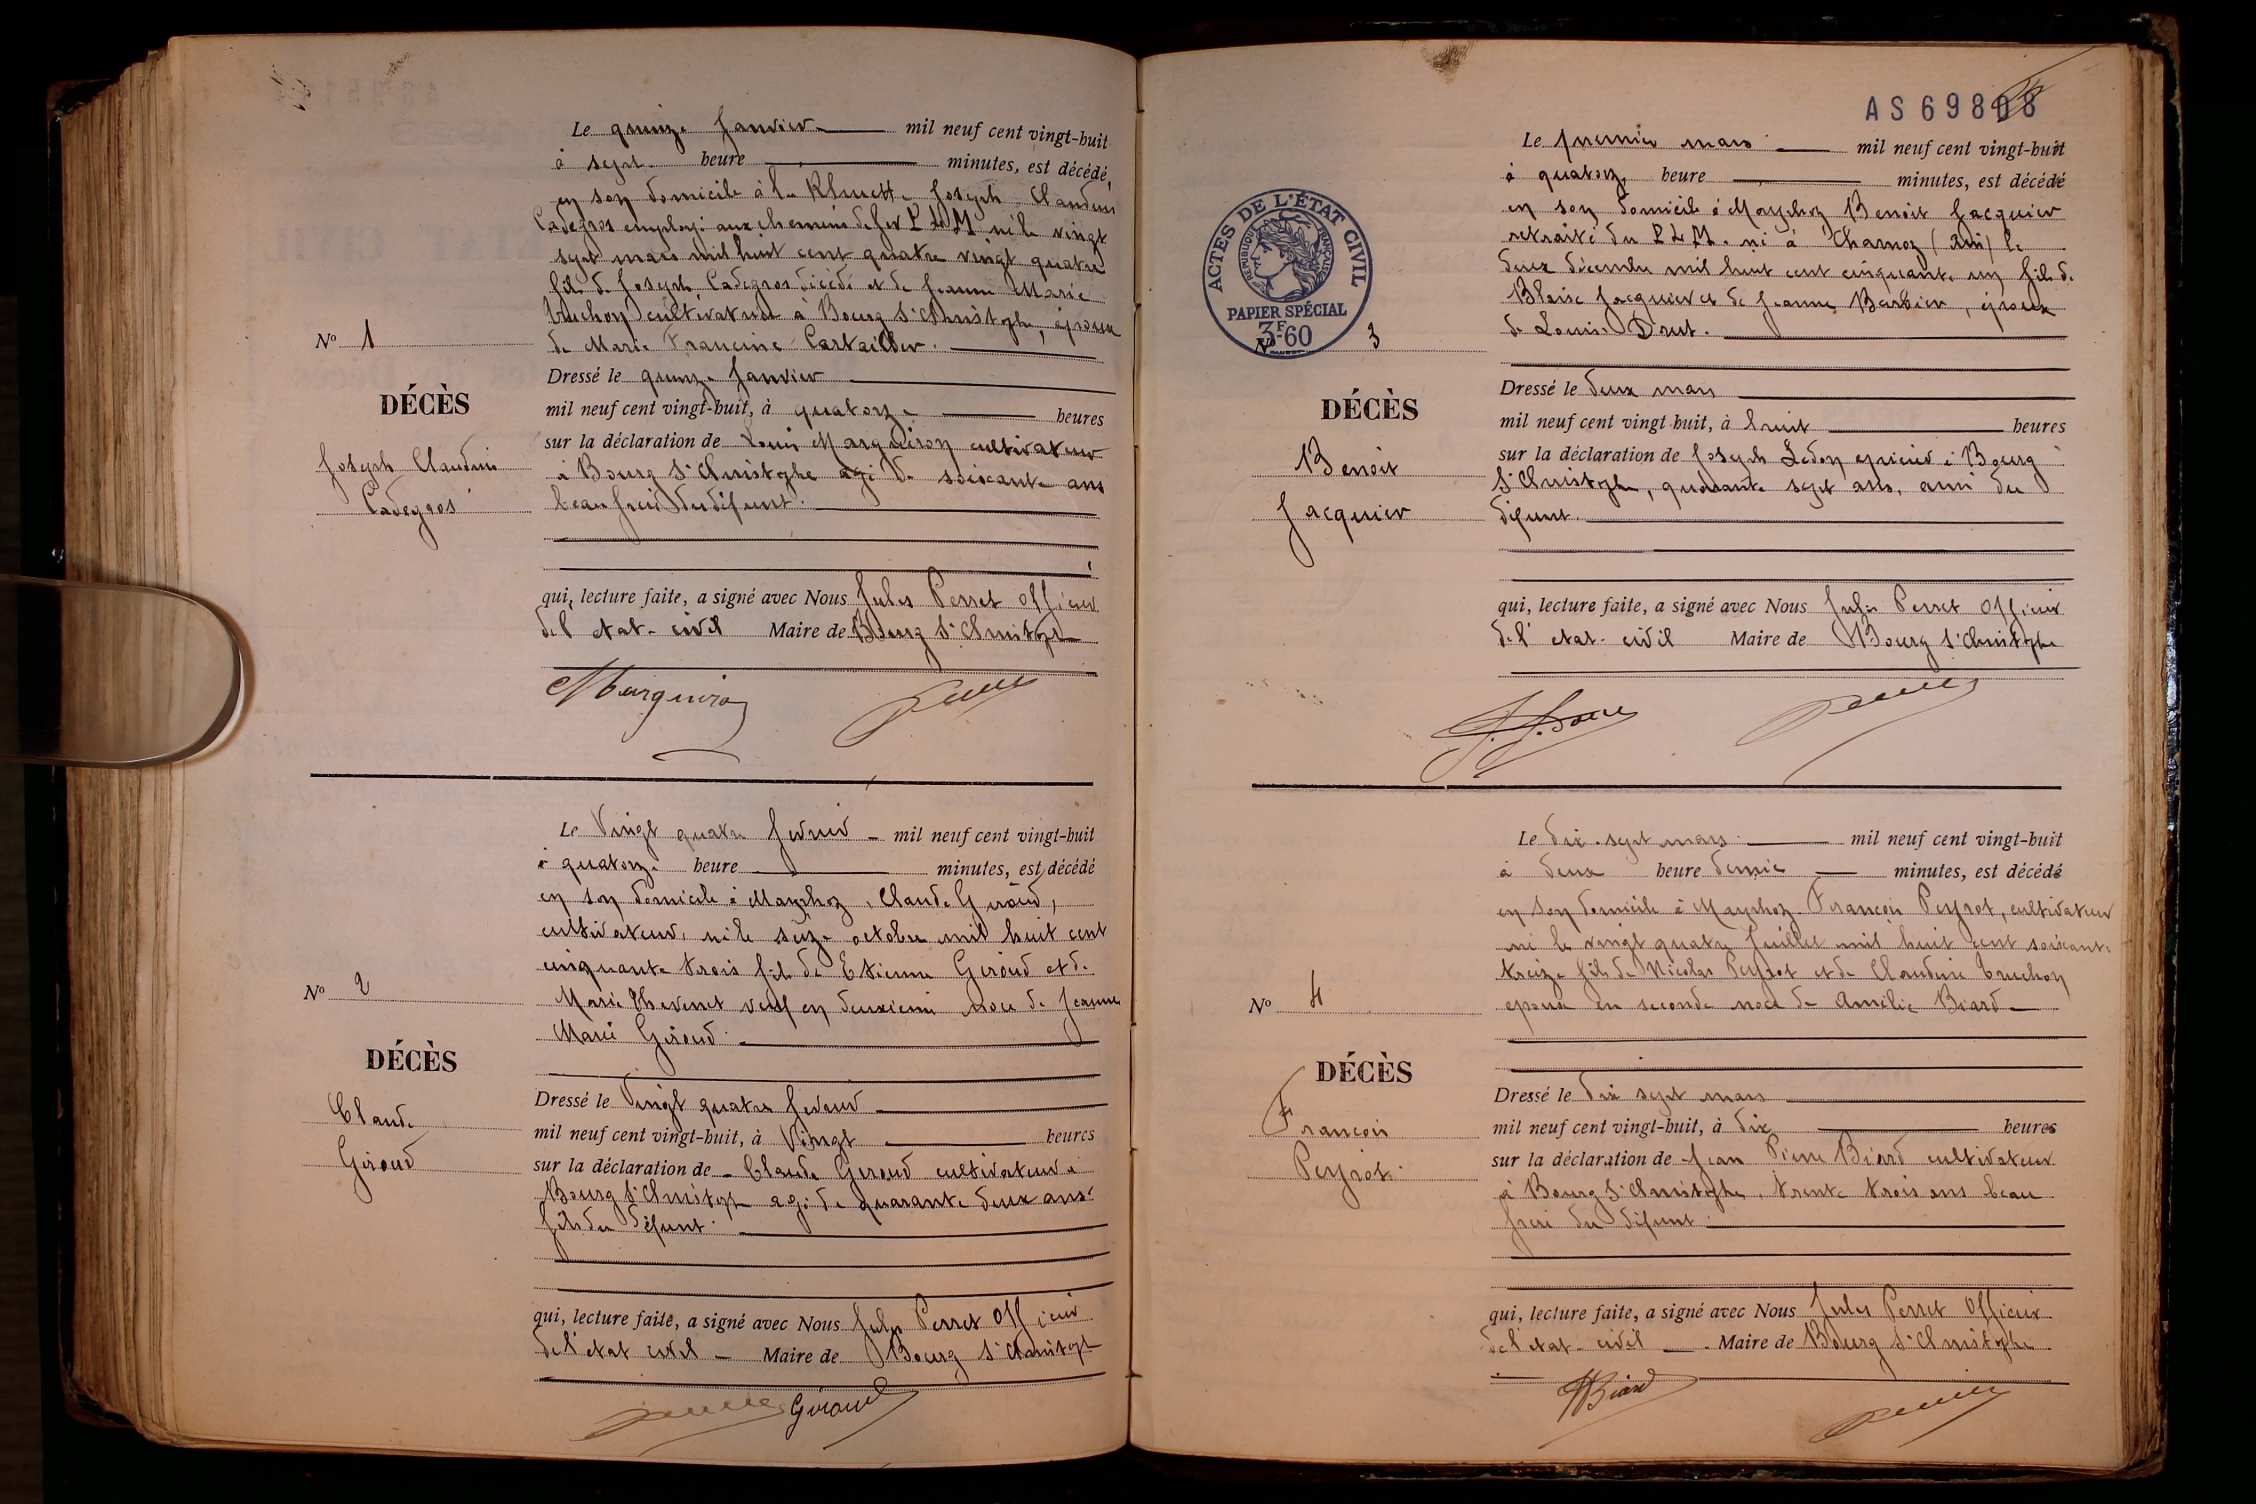 Le quinze Janvier mil neuf cent vingt-huit
à sept heure minutes, est décédé,
en son domicile à la Joseph Claudius
Cadegros employé aux chemins de fer P L M né le vingt
sept mars mil huit cent quatre vingt quatre
fils de Joseph Cadegros décédé et de Jeanne Marie
Truchon cultivatrice à Bourg St Christophe, époux
de Marie Francine Cartailler.
No 1
DÉCÈS
Joseph Claudius
Cadegros
Dressé le quinze Janvier
mil neuf cent vingt-huit, à quatorze heures
sur la déclaration de Louis Marguiron cultivateur
à Bourg St Christophe agé de soixante ans
beau frère du défunt.
qui, lecture faite, a signé avec Nous Jules Perret Officier
de l'etat-civil Maire de Bourg St Christophe
Marguiron Perret
Le Vingt quatre fevrier mil neuf cent vingt-huit
à quatorze heure minutes, est décédé
en son domicile à Marphoz, Claude Giroud,
cultivateur, né le seize octobre mil huit cent
cinquante trois fils de Etienne Giroud et de
Marie Thevenet veuf en deuxieme noce de Jeanne
Marie Giroud.
No 2
DÉCÈS
Claude
Giroud
Dressé le Vingt quatre fevrier
mil neuf cent vingt-huit, à Vingt heures
sur la déclaration de Claude Giroud cultivateur à
Bourg St Christophe agé de quarante deux ans
fils du défunt.
qui, lecture faite, a signé avec Nous Jules Perret Officier
de l'etat civil Maire de Bourg St Christophe
Perret Giroud
AS 69808
ACTES DE L'ÉTAT CIVIL
RÉPUBLIQUE FRANÇAISE
PAPIER SPÉCIAL
3F-60
Le premier mars mil neuf cent vingt-huit
à quatorze heure minutes, est décédé
en son domicile à Marphoz Benoit Jacquier
retraité du P L M. né à Charnoz (Ain) le
deux décembre mil huit cent cinquante un fils de
Blaise Jacquier et de Jeanne Barbier, époux
de Louise Drut.
No 3
DÉCÈS
Benoit
Jacquier
Dressé le deux mars
mil neuf cent vingt-huit, à huit heures
sur la déclaration de Joseph epicier à Bourg
St Christophe, quarante sept ans, ami du
défunt.
qui, lecture faite, a signé avec Nous Jules Perret Officier
de l'etat-civil Maire de Bourg St Christophe
Perret
Le dix-sept mars mil neuf cent vingt-huit
à deux heure demie minutes, est décédé
en son domicile à Marphoz François Peyrot, cultivateur
né le vingt quatre Juillet mil huit cent soixante
treize fils de Nicolas Peyrot et de Claudine Truchon
epoux en seconde noce de Amélie Biard
No 4
DÉCÈS
François
Peyrot
Dressé le dix sept mars
mil neuf cent vingt-huit, à dix heures
sur la déclaration de Jean Pierre Biard cultivateur
à Bourg St Christophe, trente trois ans beau
frère du défunt.
qui, lecture faite, a signé avec Nous Jules Perret Officier
de l'etat-civil Maire de Bourg St Christophe
Biard Perret